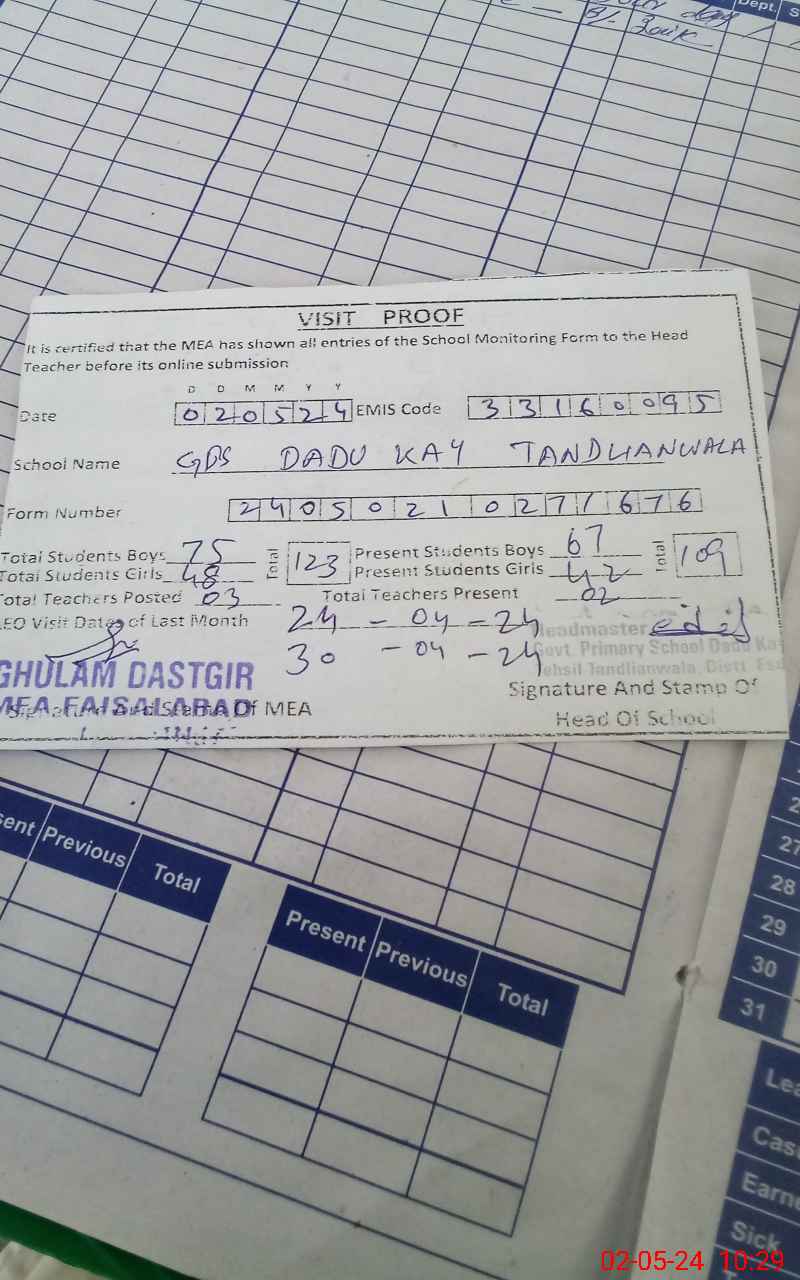 Dept.
VISIT PROOF
It is certified that the MEA has shown all entries of the School Monitoring Form to the Head
Teacher before its online submission
D D M M Y Y
Date 020524 EMIS Code 33160095
School Name GPS DADU KAY TANDLIANWALA
Form Number 24050210271676
Total Students Boys 75 Total 123 Present Students Boys 67 Total 109
Total Students Girls 48 Present Students Girls 42
Total Teachers Posted 03 Total Teachers Present 02
AEO Visit Dates of Last Month 24-04-24
30-04-24
Headmaster
Govt. Primary School Dadu Kay
Tehsil Tandlianwala, Distt. Fsd
GHULAM DASTGIR
MEA FAISALABAD
Signature And Stamp Of MEA
Signature And Stamp Of
Head Of School
Present Previous Total
Present Previous Total
27
28
29
30
31
Sick
02-05-24 10:29